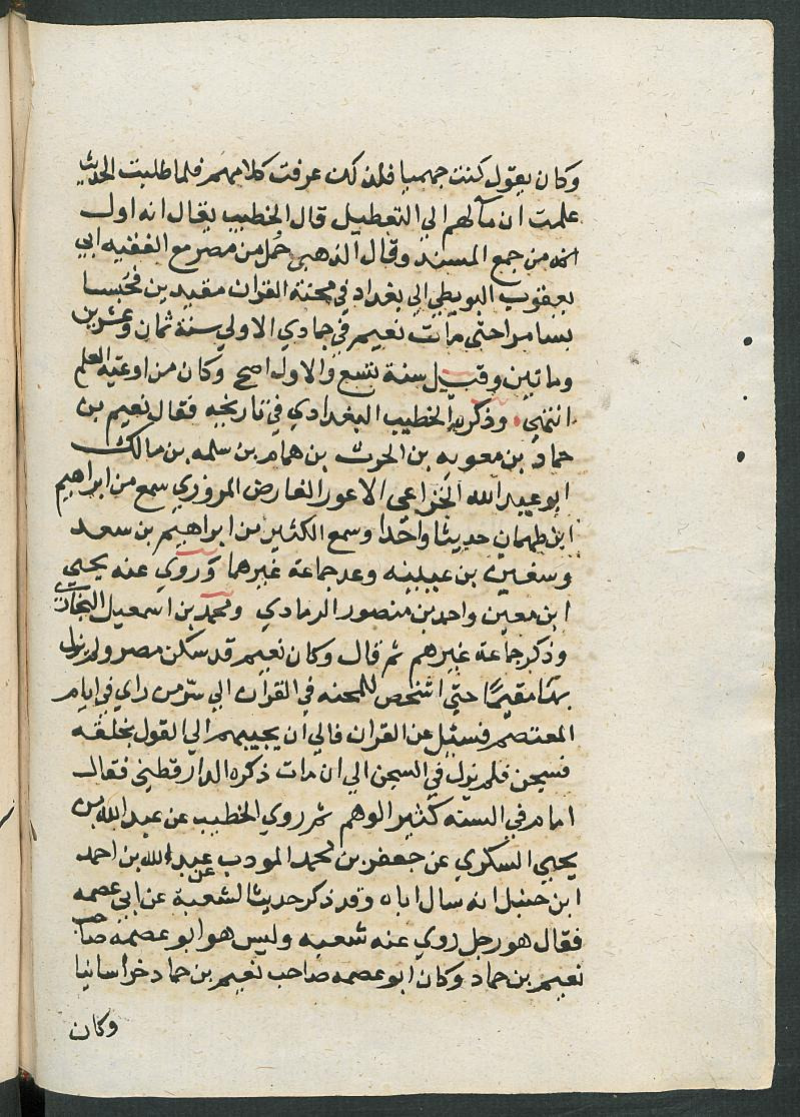 وكان يقول كنت جهميا فلذلك عرفت كلامهم فلما طلبت الحديث
علمت ان مآلهم الي التعطيل قال الخطيب يقال انه اول
من جمع المسند وقال الذهبي حمل من مصر مع الفقيه ابي
يعقوب البويطي الي بغداد في محنة القران مقيدين فحبسا
بسامرا حتي مات نعيم في جمادي الاولي سنة ثمان وعشرين
وماتين وقيل سنة تسع والاول اصح وكان من اوعية العلم
انتهي وذكره الخطيب البغدادي في تاريخه فقال نعيم بن
حماد بن معويه بن الحرث بن همام بن سلمه بن مالك
ابو عبد الله الخزاعي الاعور الفارض المروزي سمع من ابراهيم
ابن طهمان حديثا واحدا وسمع الكثير من ابراهيم بن سعد
وسفين بن عيينه وعد جماعة غيرهما وروي عنه يحيي
ابن معين واحمد بن منصور الرمادي ومحمد بن اسمعيل البخاري
وذكر جماعة غيرهم ثم قال وكان نعيم قد سكن مصر ولم يزل
بها مقيما حتي اشخص للمحنه في القران الي سر من راي في ايام
المعتصم فسئل عن القران فابي ان يجيبهم الي القول بخلقه
فسجن فلم يزل في السجن الي ان مات ذكره الدارقطني فقال
امام في السنه كثير الوهم ثم روي الخطيب عن عبد الله بن
يحيي السكري عن جعفر بن محمد المودب عن عبد الله بن احمد
ابن حنبل انه سال اباه وقد ذكر حديثا لشعبة عن ابي عصمه
فقال هو رجل روي عنه شعبه وليس هو ابو عصمه صاحب
نعيم بن حماد وكان ابو عصمه صاحب نعيم بن حماد خراسانيا
وكان